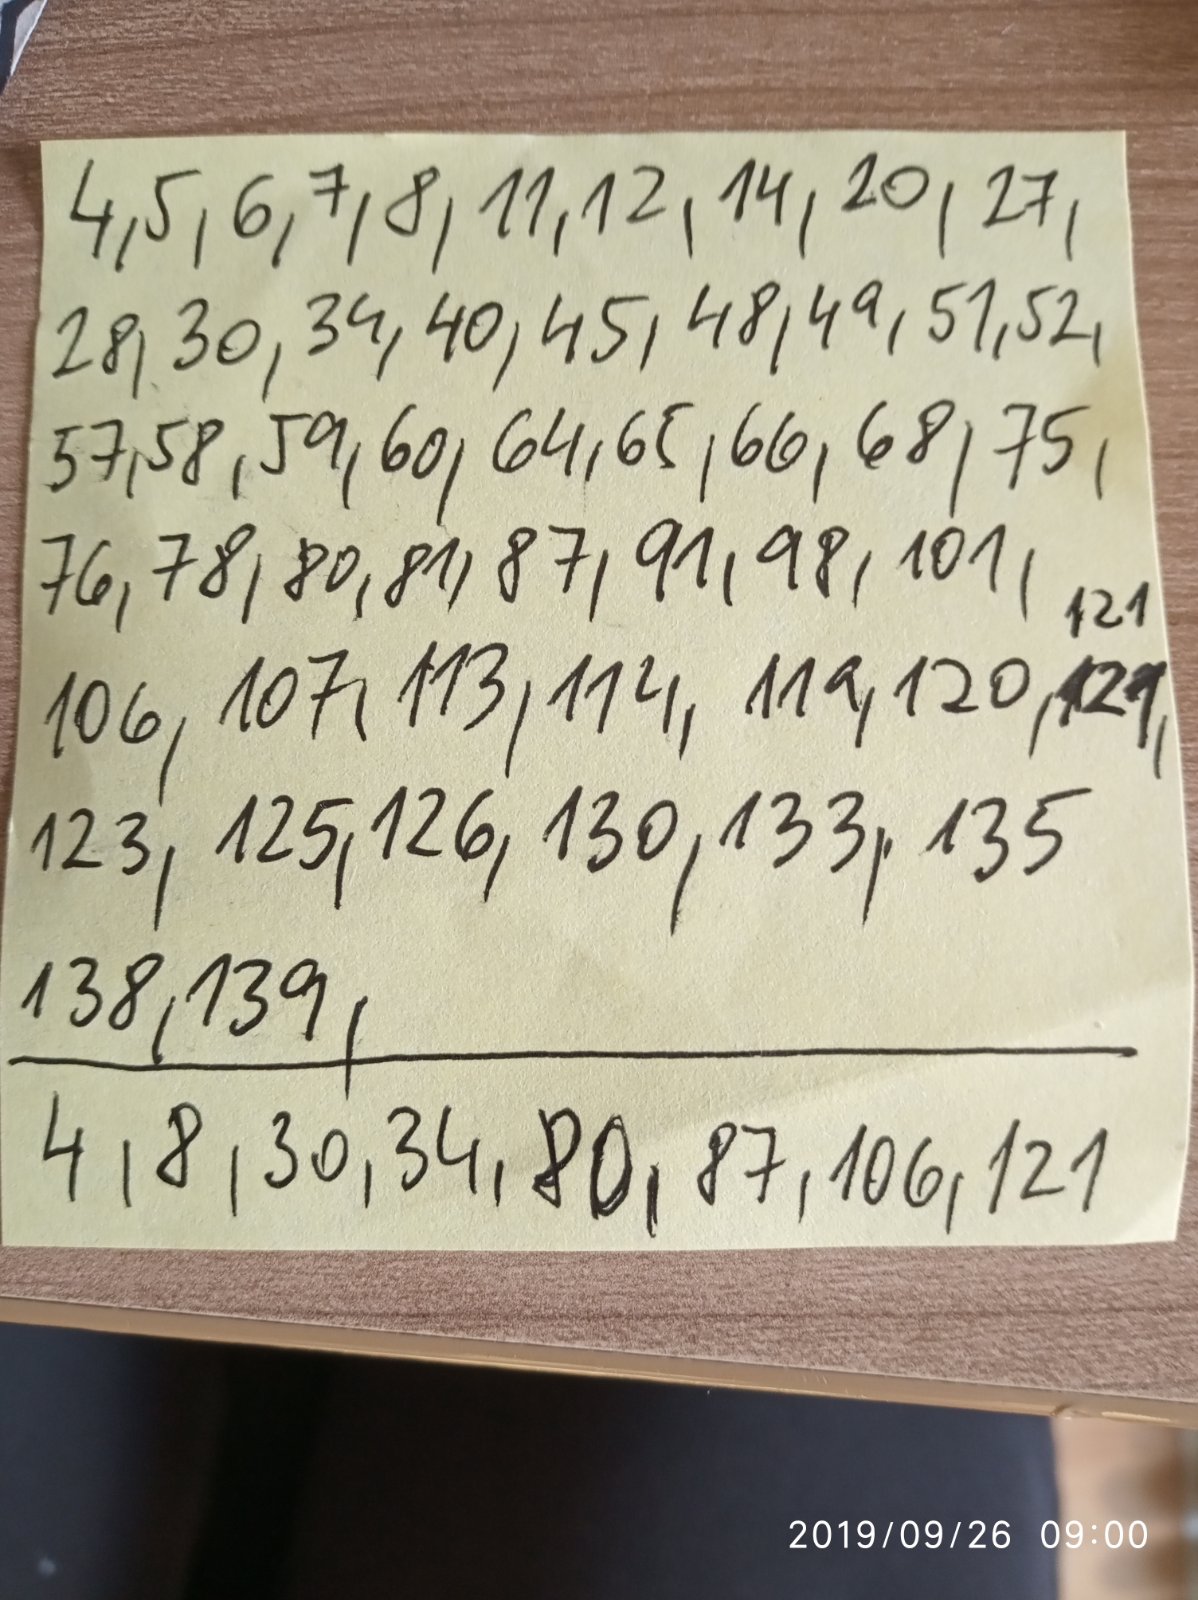 4, 5, 6, 7, 8, 11, 12, 14, 20, 27,
28, 30, 34, 40, 45, 48, 49, 51, 52,
57, 58, 59, 60, 64, 65, 66, 68, 75,
76, 78, 80, 81, 87, 91, 98, 101,
121
106, 107, 113, 114, 119, 120, 121,
123, 125, 126, 130, 133, 135
138, 139,
4, 8, 30, 34, 80, 87, 106, 121
2019/09/26 09:00